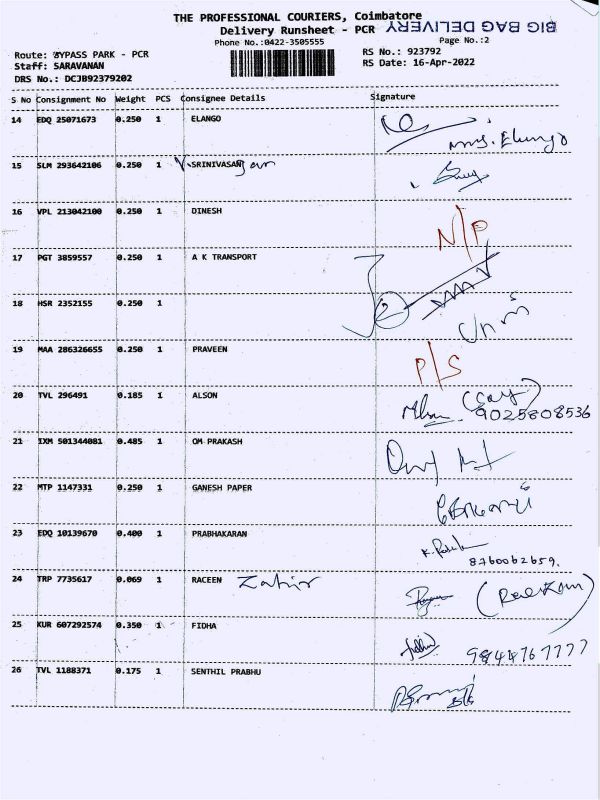 THE PROFESSIONAL COURIERS, Coimbatore
Delivery Runsheet - PCR BIG BAG DELIVERY
Phone No.:0422-3505555 Page No.:2
Route: BYPASS PARK - PCR RS No.: 923792
Staff: SARAVANAN RS Date: 16-Apr-2022
DRS No.: DCJB92379202
S No Consignment No Weight PCS Consignee Details Signature
14 EDQ 25071673 0.250 1 ELANGO
Mrs. Elango
15 SLM 293642106 0.250 1 SRINIVASAN
16 VPL 213042100 0.250 1 DINESH
N/P
17 PGT 3859557 0.250 1 A K TRANSPORT
18 HSR 2352155 0.250 1 2
19 MAA 286326655 0.250 1 PRAVEEN
P/S
20 TVL 296491 0.185 1 ALSON
9025808536
21 IXM 501344081 0.485 1 OM PRAKASH
22 MTP 1147331 0.250 1 GANESH PAPER
23 EDQ 10139670 0.400 1 PRABHAKARAN
8760062659.
24 TRP 7735617 0.069 1 RACEEN Zahir
25 KUR 607292574 0.350 1 FIDHA
9844767777
26 TVL 1188371 0.175 1 SENTHIL PRABHU